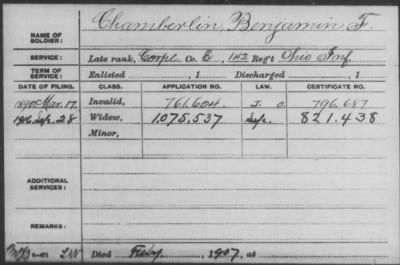 NAME OF SOLDIER: Chamberlin, Benjamin F.
SERVICE: Late rank, Corpl Co. E, 142 Reg't Ohio Inf.
TERM OF SERVICE: Enlisted , 1 Discharged , 1
DATE OF FILING. CLASS. APPLICATION NO. LAW. CERTIFICATE NO.
1890 Mar. 17. Invalid, 761.604. J. O. 796.687
Sep. 28 Widow, 1,075,537 Sep. 821.438
Minor,
ADDITIONAL SERVICES:
REMARKS:
Died Feby , 1907, at